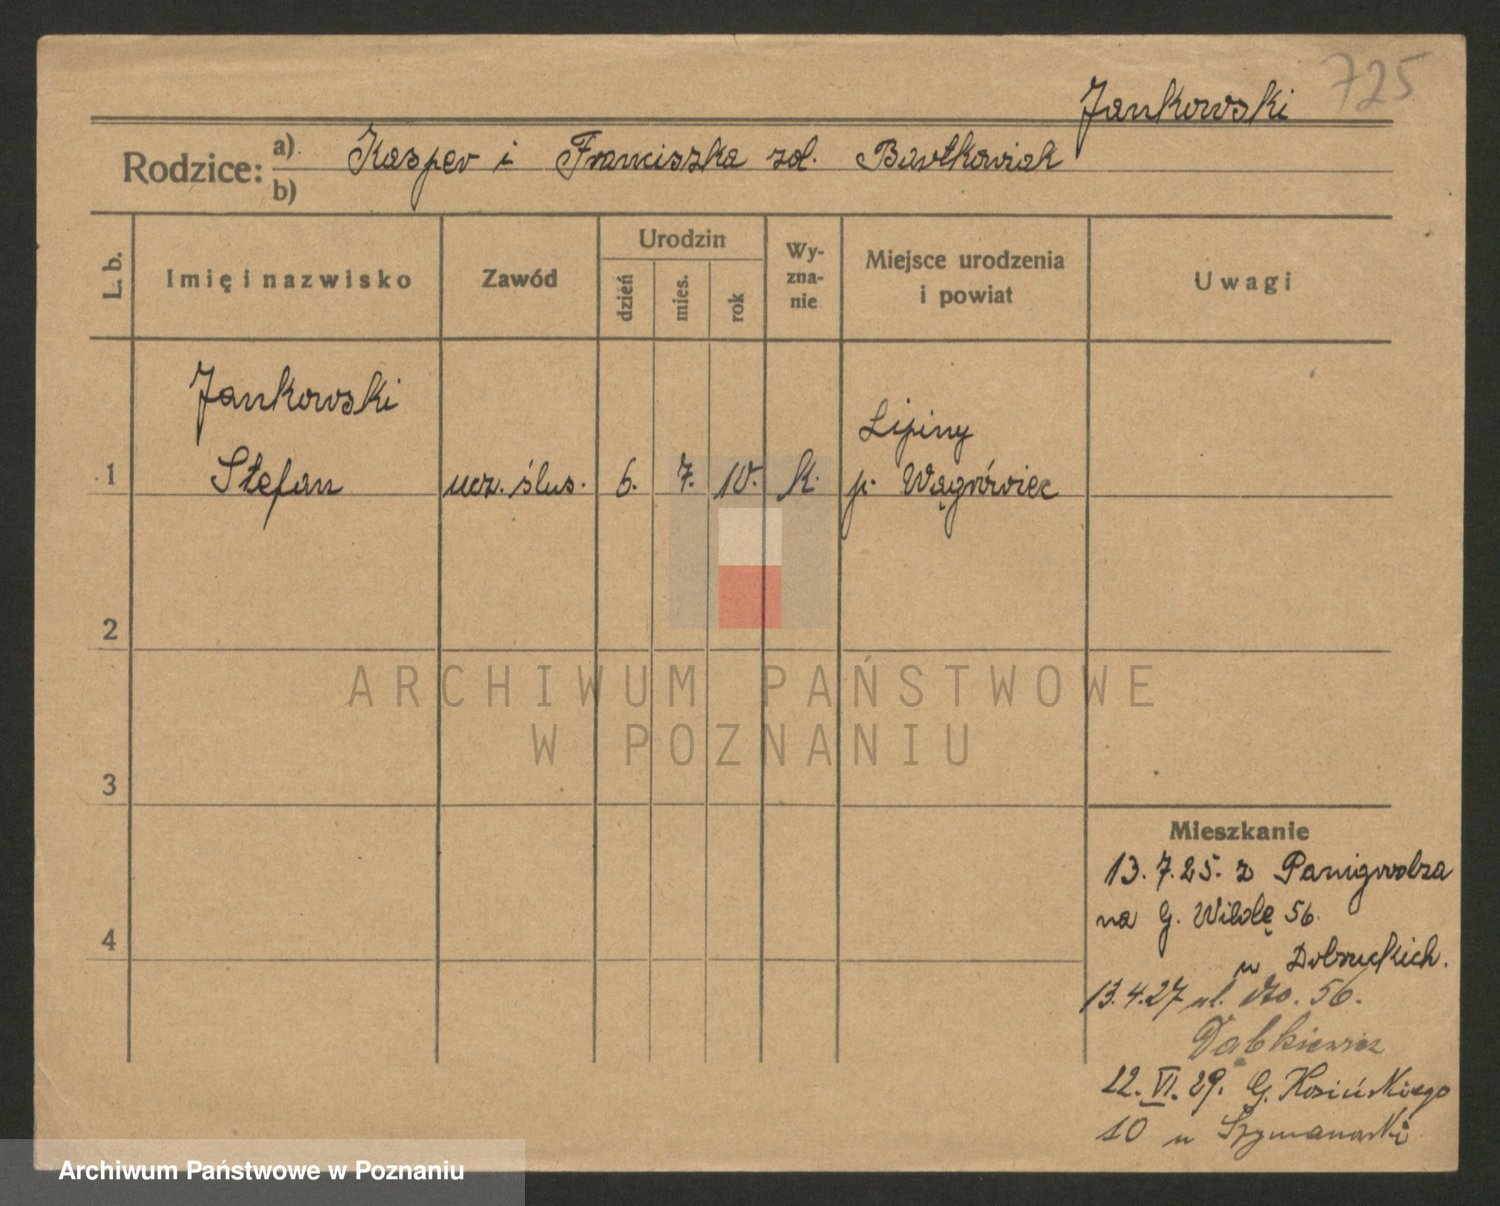 725
Jankowski
Rodzice: a) Kasper i Franciszka zd. Bartkowiak
b)
L. b.
Imię i nazwisko
Zawód
Urodzin
dzień
mies.
rok
Wy-
zna-
nie
Miejsce urodzenia
i powiat
Uwagi
Jankowski
Lipiny
1 Stefan ucz. ślus. 6. 7. 10. k. p. Wągrówiec
2
3
4
Mieszkanie
13.7.25. z Panigrodza
na G. Wildę 56.
u Dobruckich.
13.4.27 ul. 56.
Dąbkiewicz
22.VI.29. G. Kosińskiego
10 u Szymanowski
ARCHIWUM PAŃSTWOWE
W POZNANIU
Archiwum Państwowe w Poznaniu